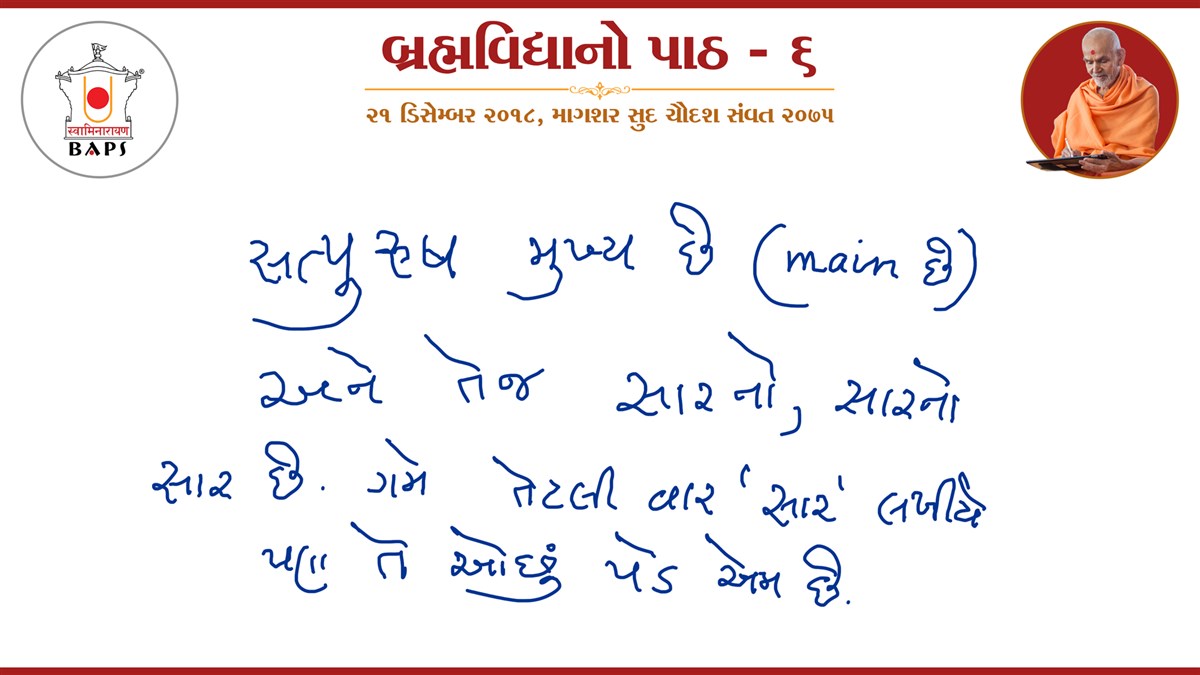 બ્રહ્મવિદ્યાનો પાઠ - ૬
૨૧ ડિસેમ્બર ૨૦૧૮, માગશર સુદ ચૌદશ સંવત ૨૦૭૫
स्वामिनारायण
BAPS
સત્પુરુષ મુખ્ય છે (main છે)
અને તેજ સારનો, સારનો
સાર છે. ગમે તેટલી વાર 'સાર' લખીયે
પણ તે ઓછું પડે એમ છે.